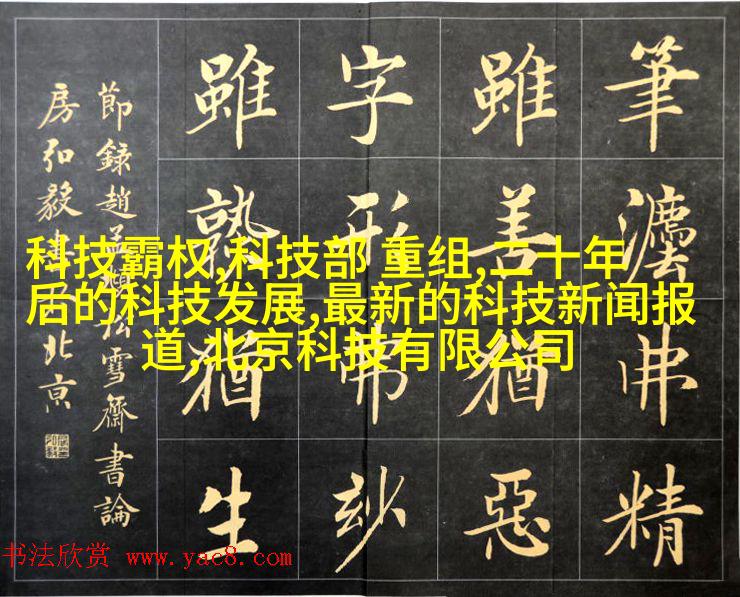 筆灋弗精
雖善猶惡
字形弗玅
雖熟猶生
節錄趙孟頫松雪齋書論
房弘毅書于北京
科技霸权,科技部 重组,二十年
后的科技发展,最新的科技新闻报
道,北京科技有限公司
书法欣赏 www.yac8.com